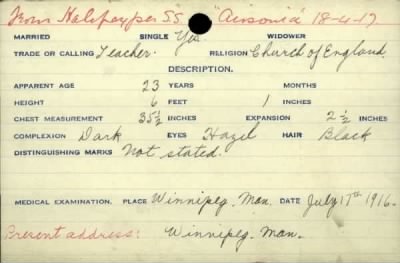 From Halifax per SS "Ausonia" 18-4-17
MARRIED SINGLE Yes. WIDOWER
TRADE OR CALLING Teacher. RELIGION Church of England.
DESCRIPTION.
APPARENT AGE 23 YEARS MONTHS
HEIGHT 6 FEET 1 INCHES
CHEST MEASUREMENT 35½ INCHES EXPANSION 2½ INCHES
COMPLEXION Dark EYES Hazel HAIR Black
DISTINGUISHING MARKS Not stated.
MEDICAL EXAMINATION. PLACE Winnipeg. Man. DATE July 17th 1916.
Present address: Winnipeg. Man.